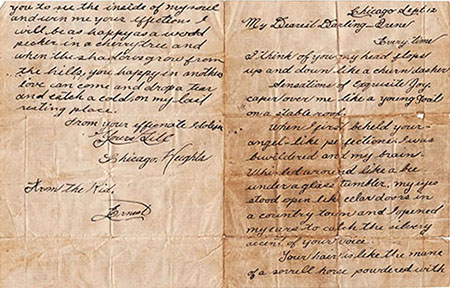 Chicago Sept 12
My Dearest Darling Irene
Every time
I think of you my head flops
up and down like a churn dasher
Sensations of Exquisite Joy
caper over me like a young Goat
on a stable roof.
When I first beheld your
angel-like perfections I was
bewildered and my brain
Whirled around like a be
under a glass tumbler, my eyes
stood open like celar doors in
a country town and I opened
my ears to catch the silvery
accent of your voice.
Your hair is like the mane
of a sorrell horse powdered with
you to see the inside of my soul
and win me your effections I
will be as happy as a wood
pecker in a cherry tree and
when the shadows grow from
the hills, you happy in another
love can come and drop a tear
and catch a cold, on my last
resting place.
From your effionate
Yours Till
Chicago, Heights
From the Kid.
Ernest